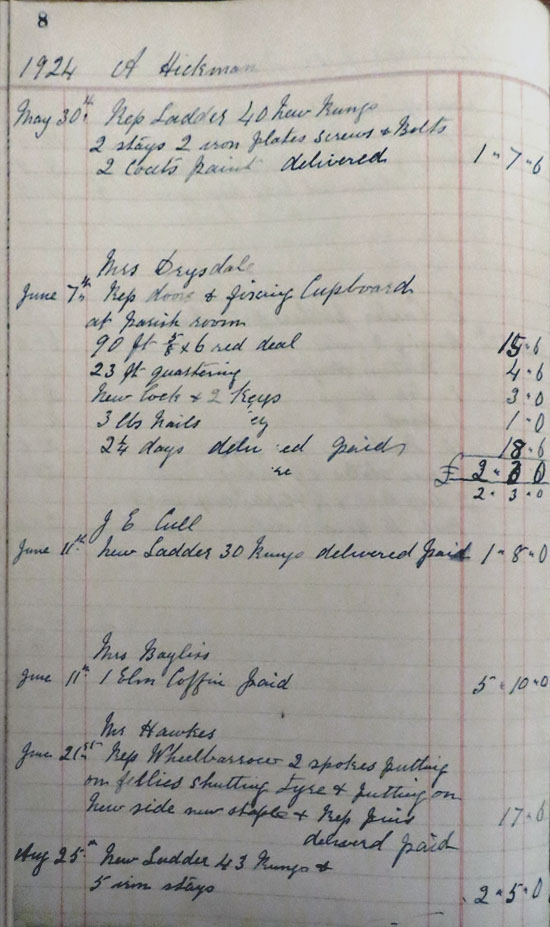 8
1924 A Hickman
May 30th Rep Ladder 40 New Rungs
2 stays 2 iron plates screws & Bolts
2 Coats paint delivered 1 " 7 " 6
Mrs Drysdale
June 7th Rep doors & fixing Cupboard
at Parish room
90 ft 5/8 x 6 red deal 15 " 6
23 ft quartering 4 " 6
New lock & 2 Keys 3 " 0
3 lbs Nails 1 " 0
2 1/4 days paid 18 " 6
£ 2 " 3 0
2 " 3 " 0
J E Cull
June 11th New Ladder 30 Rungs delivered paid 1 " 8 " 0
Mrs Bayliss
June 11th 1 Elm Coffin paid 5 " 10 " 0
Mr Hawkes
June 21st Rep Wheelbarrow 2 spokes putting
on fellies shutting Tyre & putting on
New side new staple & Rep 17 " 6
deliverd paid
Aug 25th New Ladder 43 Rungs &
5 iron stays 2 " 5 " 0